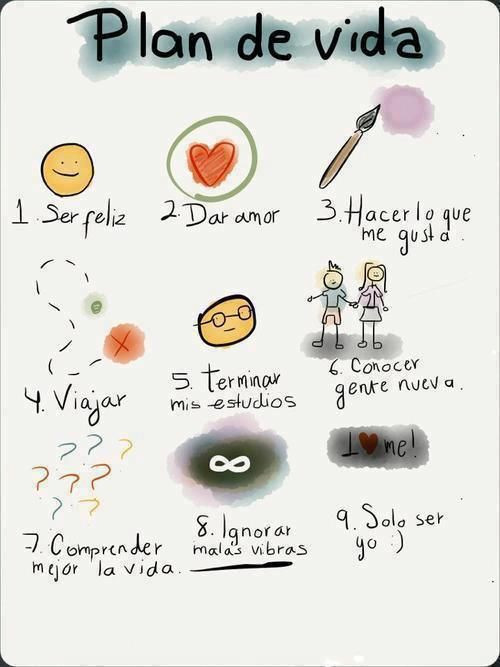 Plan de vida
1. Ser feliz
2. Dar amor
3. Hacer lo que
me gusta.
4. Viajar
5. Terminar
mis estudios
6. Conocer
gente nueva.
? ? ?
? ? ? ?
? ?
∞
I ♥ me!
7. Comprender
mejor la vida.
8. Ignorar
malas vibras
9. Solo ser
yo :)